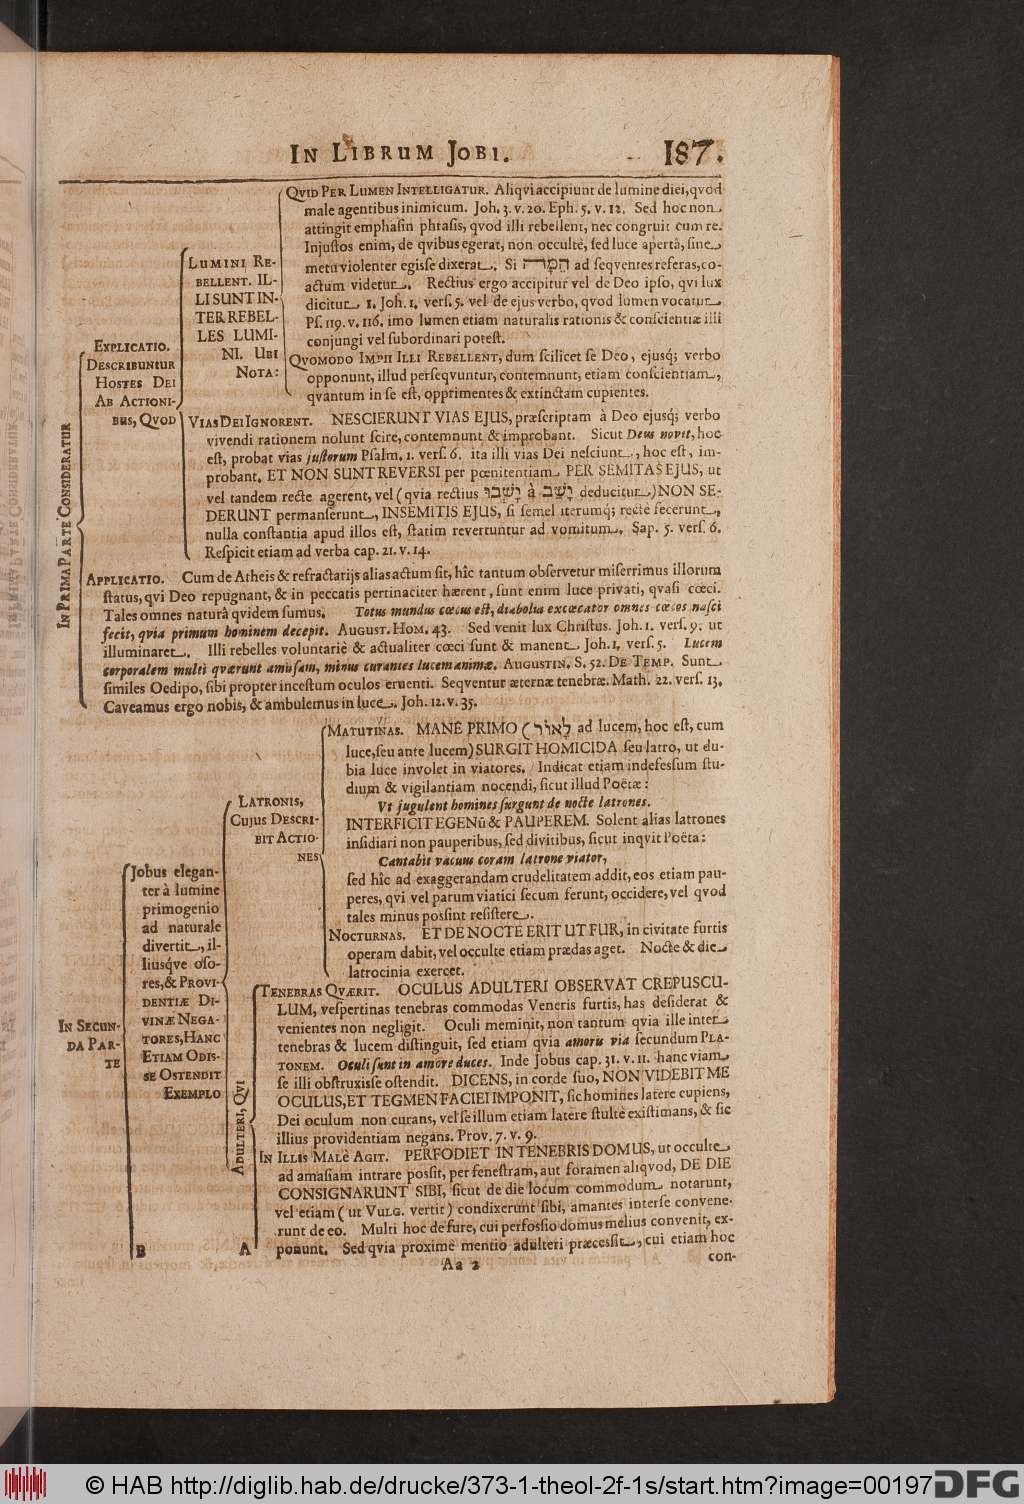 IN LIBRUM JOBI. 187.
IN PRIMA PARTE CONSIDERATUR
EXPLICATIO.
DESCRIBUNTUR
HOSTES DEI
AB ACTIONI-
BUS, QVOD
LUMINI RE-
BELLENT. IL-
LI SUNT IN-
TER REBEL-
LES LUMI-
NI. UBI
NOTA:
QVID PER LUMEN INTELLIGATUR. Aliqvi accipiunt de lumine diei, qvod
male agentibus inimicum. Joh. 3. v. 20. Eph. 5. v. 12. Sed hoc non
attingit emphasin phrasis, qvod illi rebellent, nec congruit cum re.
Injustos enim, de qvibus egerat, non occultè, sed luce apertâ, sine
metu violenter egisse dixerat. Si ad seqventes referas, co-
actum videtur. Rectius ergo accipitur vel de Deo ipso, qvi lux
dicitur 1. Joh. 1. vers. 5. vel de ejus verbo, qvod lumen vocatur
Ps. 119. v. 116. imo lumen etiam naturalis rationis & conscientiæ illi
conjungi vel subordinari potest.
QVOMODO IMPII ILLI REBELLENT, dum scilicet se Deo, ejusq; verbo
opponunt, illud perseqvuntur, contemnunt, etiam conscientiam,
qvantum in se est, opprimentes & extinctam cupientes.
VIAS DEI IGNORENT. NESCIERUNT VIAS EJUS, præscriptam à Deo ejusq; verbo
vivendi rationem nolunt scire, contemnunt & improbant. Sicut Deus novit, hoc
est, probat vias justorum Psalm. 1. vers. 6. ita illi vias Dei nesciunt, hoc est, im-
probant. ET NON SUNT REVERSI per pœnitentiam PER SEMITAS EJUS, ut
vel tandem recte agerent, vel (qvia rectius יָשְׁבוּ à יָשַׁב deducitur) NON SE-
DERUNT permanserunt, IN SEMITIS EJUS, si semel iterumq; rectè fecerunt,
nulla constantia apud illos est, statim revertuntur ad vomitum. Sap. 5. vers. 6.
Respicit etiam ad verba cap. 21. v. 14.
APPLICATIO. Cum de Atheis & refractarijs alias actum sit, hîc tantum observetur miserrimus illorum
status, qvi Deo repugnant, & in peccatis pertinaciter hærent, sunt enim luce privati, qvasi cœci.
Tales omnes naturâ qvidem sumus. Totus mundus cœcus est, diabolus excœcator omnes cœcos nasci
fecit, qvia primum hominem decepit. AUGUST. HOM. 43. Sed venit lux Christus. Joh. 1. vers. 9. ut
illuminaret. Illi rebelles voluntariè & actualiter cœci sunt & manent Joh. 1. vers. 5. Lucem
corporalem multi qværunt amissam, minus curantes lucem animæ. AUGUSTIN. S. 52. DE TEMP. Sunt
similes Oedipo, sibi propter incestum oculos eruenti. Seqventur æternæ tenebræ. Math. 22. vers. 13.
Caveamus ergo nobis, & ambulemus in luce. Joh. 12. v. 35.
IN SECUN-
DA PAR-
TE
Jobus elegan-
ter à lumine
primogenio
ad naturale
divertit, il-
liusqve oso-
res, & PROVI-
DENTIÆ DI-
VINÆ NEGA-
TORES, HANC
ETIAM ODIS-
SE OSTENDIT
EXEMPLO
LATRONIS,
CUJUS DESCRI-
BIT ACTIO-
NES
MATUTINAS. MANE PRIMO (לָאוֹר ad lucem, hoc est, cum
luce, seu ante lucem) SURGIT HOMICIDA seu latro, ut du-
bia luce involet in viatores. Indicat etiam indefessum stu-
dium & vigilantiam nocendi, sicut illud Poëtæ:
Vt jugulent homines surgunt de nocte latrones.
INTERFICIT EGENû & PAUPEREM. Solent alias latrones
insidiari non pauperibus, sed divitibus, sicut inqvit Poëta:
Cantabit vacuus coram latrone viator,
sed hîc ad exaggerandam crudelitatem addit, eos etiam pau-
peres, qvi vel parum viatici secum ferunt, occidere, vel qvod
tales minus possint resistere.
NOCTURNAS. ET DE NOCTE ERIT UT FUR, in civitate furtis
operam dabit, vel occulte etiam prædas aget. Nocte & die
latrocinia exercet.
ADULTERI, QVI
TENEBRAS QVÆRIT. OCULUS ADULTERI OBSERVAT CREPUSCU-
LUM, vespertinas tenebras commodas Veneris furtis, has desiderat &
venientes non negligit. Oculi meminit, non tantum qvia ille inter
tenebras & lucem distinguit, sed etiam qvia amoris via secundum PLA-
TONEM. Oculi sunt in amore duces. Inde Jobus cap. 31. v. 11. hanc viam
se illi obstruxisse ostendit. DICENS, in corde suo, NON VIDEBIT ME
OCULUS, ET TEGMEN FACIEI IMPONIT, sic homines latere cupiens,
Dei oculum non curans, vel se illum etiam latere stultè existimans, & sic
illius providentiam negans. Prov. 7. v. 9.
IN ILLIS MALÈ AGIT. PERFODIET IN TENEBRIS DOMUS, ut occulte
ad amasiam intrare possit, per fenestram, aut foramen aliqvod, DE DIE
CONSIGNARUNT SIBI, sicut de die locum commodum notarunt,
vel etiam (ut VULG. vertit) condixerunt sibi, amantes interse convene-
runt de eo. Multi hoc de fure, cui perfossio domus melius convenit, ex-
ponunt. Sed qvia proximè mentio adulteri præcessit, cui etiam hoc
B A
Aa 2 con-
© HAB http://diglib.hab.de/drucke/373-1-theol-2f-1s/start.htm?image=00197
DFG